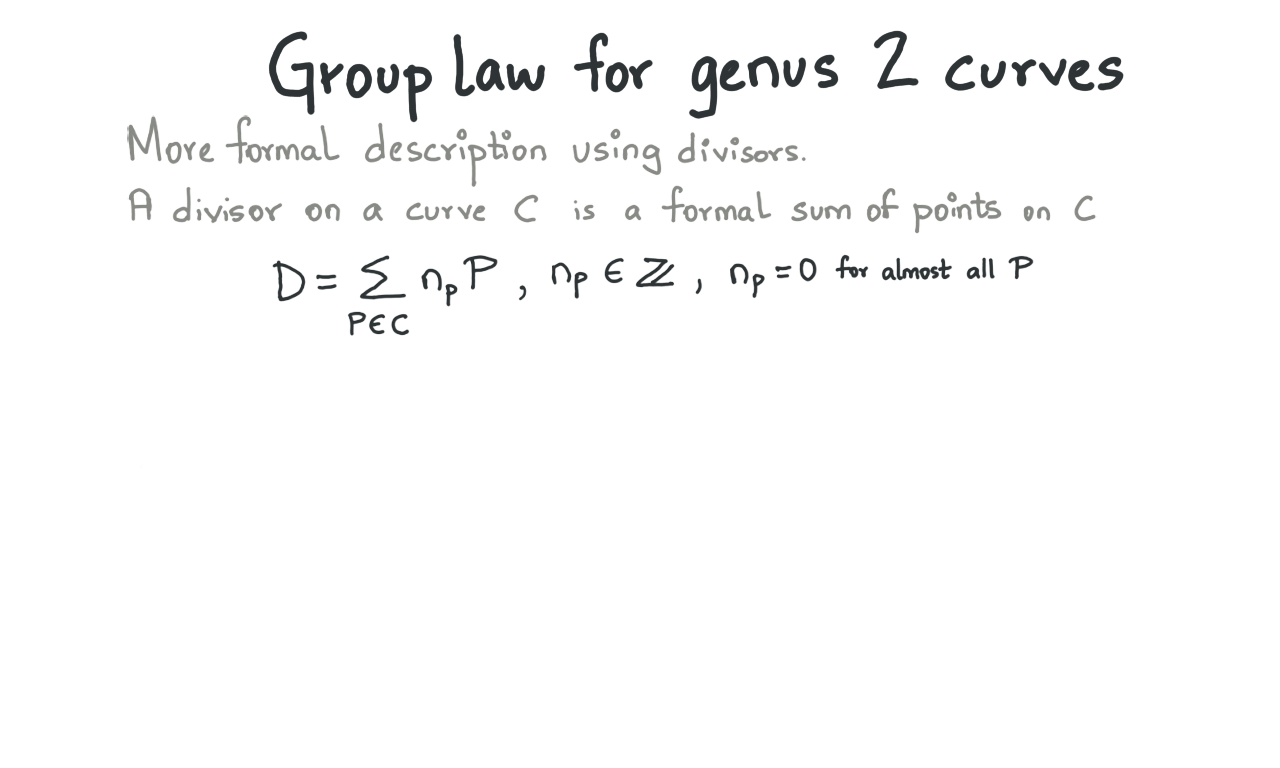 Group law for genus 2 curves
More formal description using divisors.
A divisor on a curve C is a formal sum of points on C
D = ∑ n_P P , n_P ∈ ℤ , n_P = 0 for almost all P
P∈C